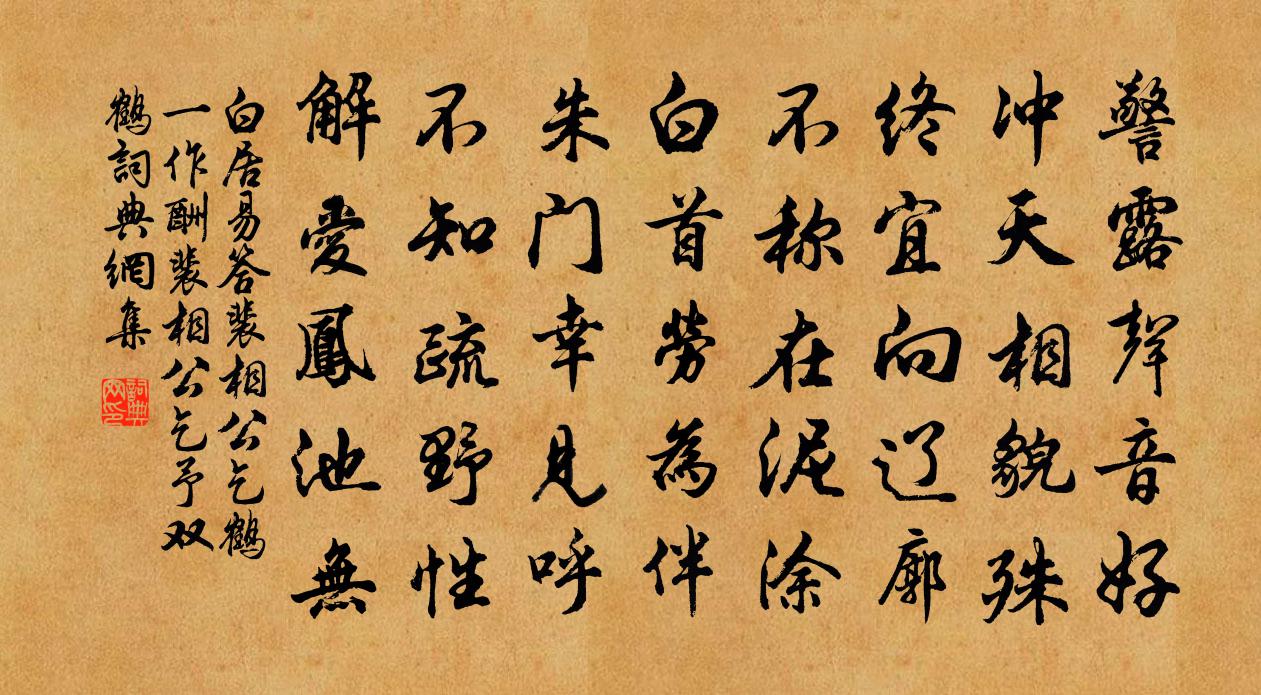 警露聲音好
冲天相貌殊
终宜向辽廓
不称在泥涂
白首勞為伴
朱门幸見呼
不知疏野性
解愛鳳池無
白居易答裴相公乞鶴
一作酬裴相公乞予双
鶴詞典網集
詞典网印